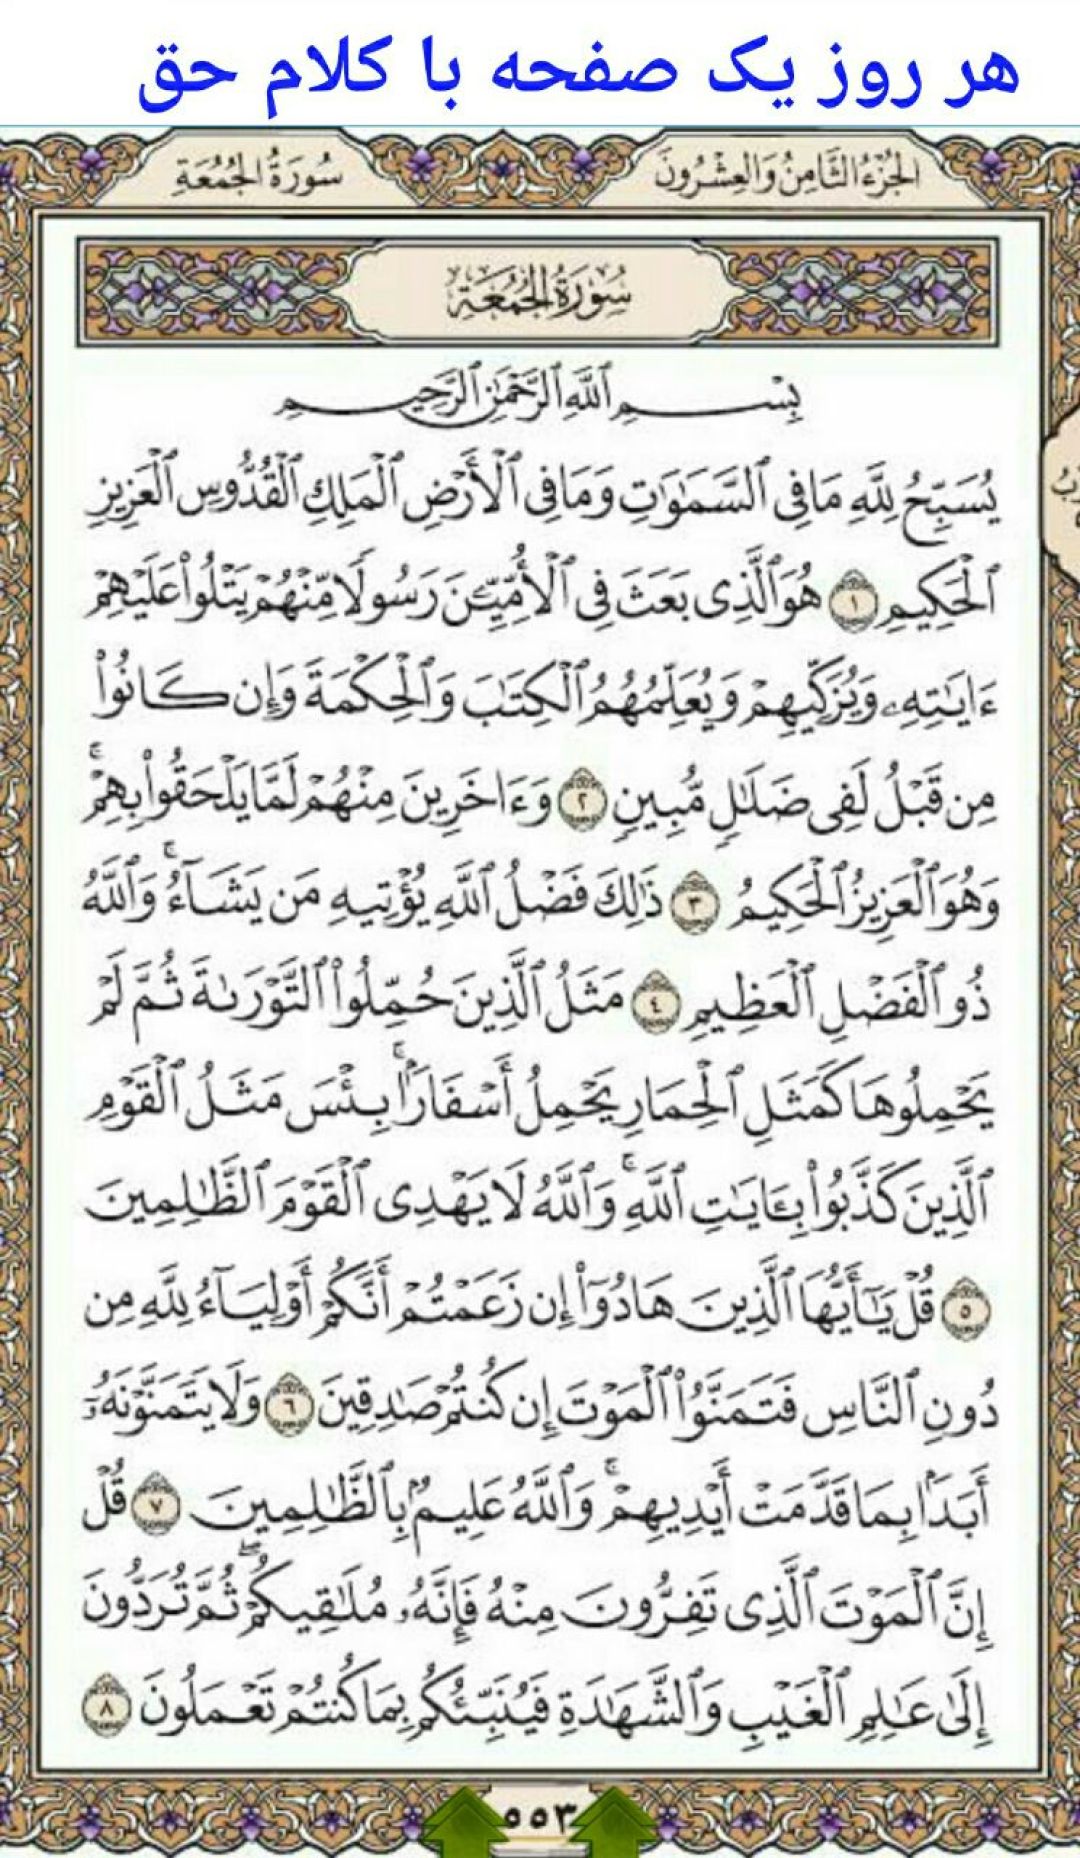 هر روز یک صفحه با کلام حق
الجُزْءُ الثَّامِنُ وَالعِشْرُونَ
سُورَةُ الجُمُعَةِ
سُورَةُ الجُمُعَةِ
بِسْمِ ٱللَّهِ ٱلرَّحْمَٰنِ ٱلرَّحِيمِ
يُسَبِّحُ لِلَّهِ مَا فِي ٱلسَّمَٰوَٰتِ وَمَا فِي ٱلْأَرْضِ ٱلْمَلِكِ ٱلْقُدُّوسِ ٱلْعَزِيزِ
ٱلْحَكِيمِ ١ هُوَ ٱلَّذِى بَعَثَ فِي ٱلْأُمِّيِّـۧنَ رَسُولًا مِّنْهُمْ يَتْلُوا۟ عَلَيْهِمْ
ءَايَٰتِهِۦ وَيُزَكِّيهِمْ وَيُعَلِّمُهُمُ ٱلْكِتَٰبَ وَٱلْحِكْمَةَ وَإِن كَانُوا۟
مِن قَبْلُ لَفِى ضَلَٰلٍ مُّبِينٍ ٢ وَءَاخَرِينَ مِنْهُمْ لَمَّا يَلْحَقُوا۟ بِهِمْ ۚ
وَهُوَ ٱلْعَزِيزُ ٱلْحَكِيمُ ٣ ذَٰلِكَ فَضْلُ ٱللَّهِ يُؤْتِيهِ مَن يَشَآءُ ۚ وَٱللَّهُ
ذُو ٱلْفَضْلِ ٱلْعَظِيمِ ٤ مَثَلُ ٱلَّذِينَ حُمِّلُوا۟ ٱلتَّوْرَىٰةَ ثُمَّ لَمْ
يَحْمِلُوهَا كَمَثَلِ ٱلْحِمَارِ يَحْمِلُ أَسْفَارًۢا ۚ بِئْسَ مَثَلُ ٱلْقَوْمِ
ٱلَّذِينَ كَذَّبُوا۟ بِـَٔايَٰتِ ٱللَّهِ ۚ وَٱللَّهُ لَا يَهْدِى ٱلْقَوْمَ ٱلظَّٰلِمِينَ
٥ قُلْ يَٰٓأَيُّهَا ٱلَّذِينَ هَادُوٓا۟ إِن زَعَمْتُمْ أَنَّكُمْ أَوْلِيَآءُ لِلَّهِ مِن
دُونِ ٱلنَّاسِ فَتَمَنَّوُا۟ ٱلْمَوْتَ إِن كُنتُمْ صَٰدِقِينَ ٦ وَلَا يَتَمَنَّوْنَهُۥٓ
أَبَدًۢا بِمَا قَدَّمَتْ أَيْدِيهِمْ ۚ وَٱللَّهُ عَلِيمٌۢ بِٱلظَّٰلِمِينَ ٧ قُلْ
إِنَّ ٱلْمَوْتَ ٱلَّذِى تَفِرُّونَ مِنْهُ فَإِنَّهُۥ مُلَٰقِيكُمْ ۖ ثُمَّ تُرَدُّونَ
إِلَىٰ عَٰلِمِ ٱلْغَيْبِ وَٱلشَّهَٰدَةِ فَيُنَبِّئُكُم بِمَا كُنتُمْ تَعْمَلُونَ ٨
٥٥٣